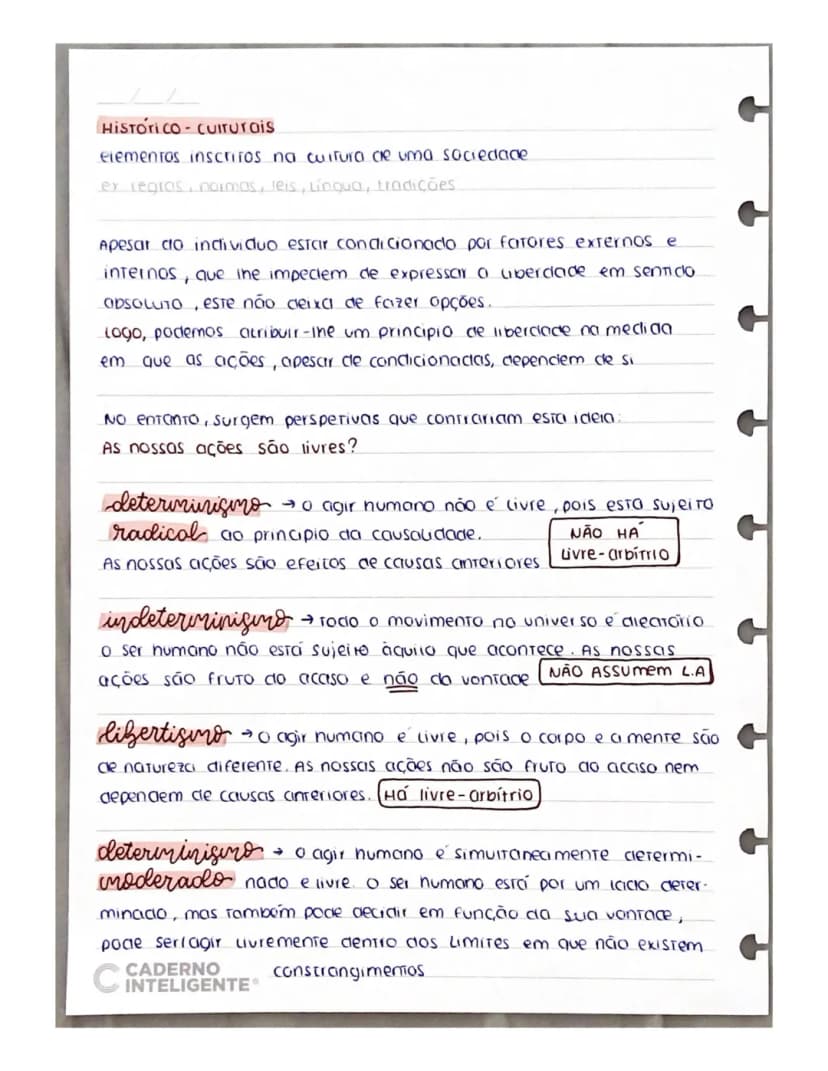 __/__/__
HISTÓRICO - CULTURAIS
elementos inscritos na cultura de uma sociedade
ex regras, normas, leis, Língua, tradições
Apesar do individuo estar condicionado por fatores externos e
internos, que lhe impedem de expressar a liberdade em sentido
absoluto, este não deixa de fazer opções.
Logo, podemos atribuir-lhe um principio de liberdade na medida
em que as ações, apesar de condicionadas, dependem de si
NO entanto, surgem perspetivas que contrariam esta ideia:
As nossas ações são livres?
determinismo → o agir humano não é livre, pois está sujeito
radical ao principio da causalidade. NÃO HÁ
As nossas ações são efeitos de causas anteriores Livre-arbítrio
indeterminismo → todo o movimento no universo é aleatório
o ser humano não está sujeito àquilo que acontece. As nossas
ações são fruto do acaso e não da vontade NÃO ASSUMEM L.A
libertismo → o agir humano é livre, pois o corpo e a mente são
de natureza diferente. As nossas ações não são fruto do acaso nem
dependem de causas anteriores. Há livre-arbítrio
determinismo → o agir humano é simultaneamente determi-
moderado nado e livre. o ser humano está por um lado deter-
minado, mas também pode decidir em função da sua vontade,
pode ser/agir livremente dentro dos limites em que não existem
constrangimentos
CADERNO
INTELIGENTE®